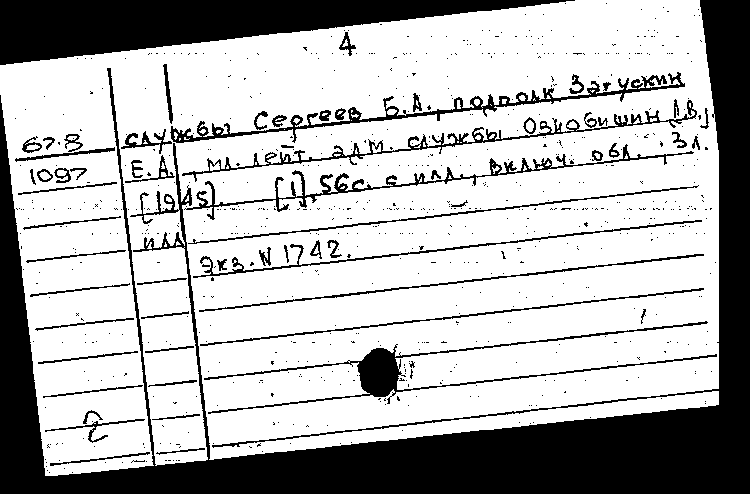 4
67.8 службы Сергеев Б.А., подполк Загускин
1097 Е.А., мл. лейт. адм. службы Ознобишин Д.В.].
[1945]. [1], 56с. с илл., включ. обл.; 3 л.
илл.
Экз. N 1742.
2